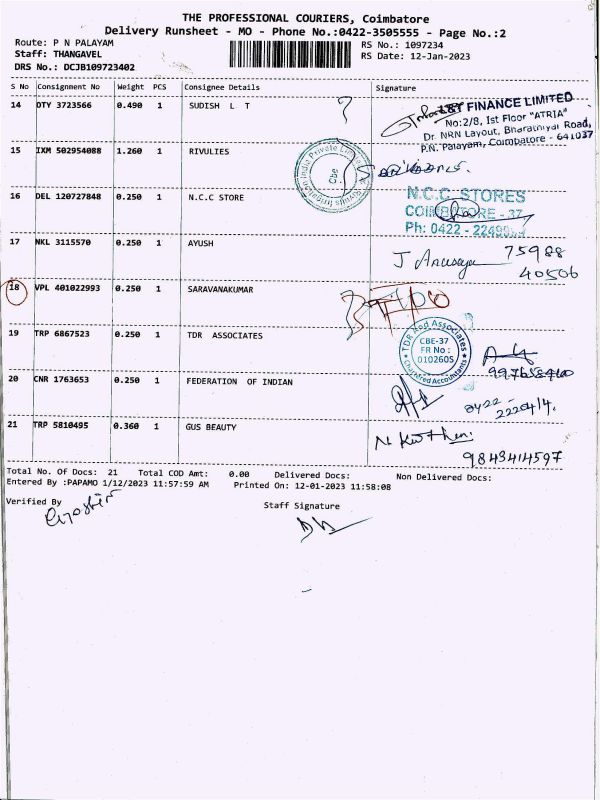 THE PROFESSIONAL COURIERS, Coimbatore
Delivery Runsheet - MO - Phone No.:0422-3505555 - Page No.:2
Route: P N PALAYAM
Staff: THANGAVEL
DRS No.: DCJB109723402
RS No.: 1097234
RS Date: 12-Jan-2023
S No Consignment No Weight PCS Consignee Details Signature
14 OTY 3723566 0.490 1 SUDISH L T
L&T FINANCE LIMITED
No:2/8, Ist Floor "ATRIA"
Dr. NRN Layout, Bharathiyar Road,
P.N. Palayam, Coimbatore - 641037
15 IXM 502954088 1.260 1 RIVULIS
Irrigation India Private Limited
Cbe
16 DEL 120727848 0.250 1 N.C.C STORE
N.C.C. STORES
COIMBATORE - 37
Ph: 0422 -
17 NKL 3115570 0.250 1 AYUSH
J Anusaya 75988
40506
18 VPL 401022993 0.250 1 SARAVANAKUMAR
19 TRP 6867523 0.250 1 TDR ASSOCIATES
TDR And Associates
CBE-37
FR No :
010260S
Chartered Accountants
20 CNR 1763653 0.250 1 FEDERATION OF INDIAN
0422-
2220414.
21 TRP 5810495 0.360 1 GUS BEAUTY
9843414597
Total No. Of Docs: 21 Total COD Amt: 0.00 Delivered Docs: Non Delivered Docs:
Entered By :PAPAMO 1/12/2023 11:57:59 AM Printed On: 12-01-2023 11:58:08
Verified By
Staff Signature